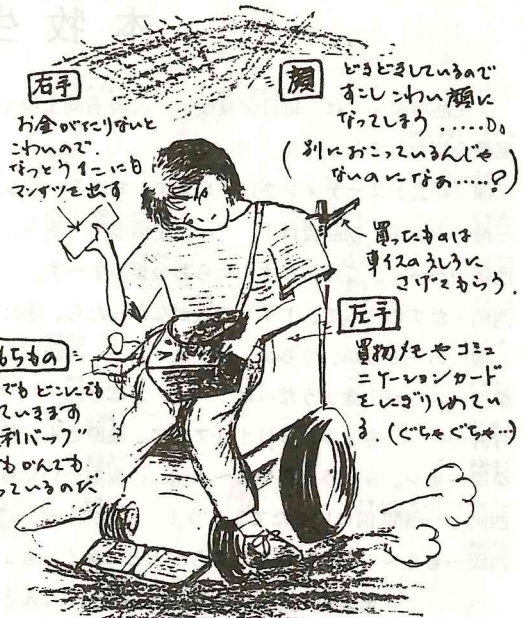 木牧生
右手
お金がたりないと
こわいので、
なっとう1こに百
マンサツを出す
顔
どきどきしているので
すこしこわい顔に
なってしまう......。
(別におこっているんじゃ
ないのになぁ.....?)
買ったものは
車イスのうしろに
さげてもらう.
左手
買物メモやコミュ
ニケーションカード
をにぎりしめてい
る(ぐちゃぐちゃ…)
もちもの
でもどこにでも
ていきます
利バッグ
もかんでも
っているのだ